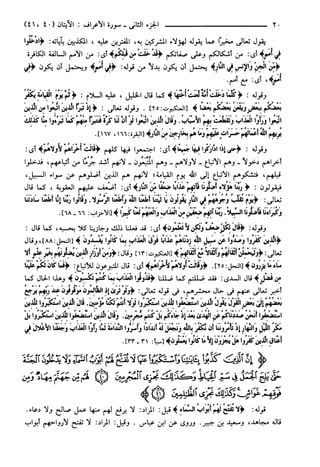 ٢٠ الجزء الثاني - سورة الأعراف : الآيتان (٤٠، ٤١)
يقول تعالى مخبرًا عما يقوله لهؤلاء المشركين به، المفترين عليه، المكذبين بآياته: ﴿ادْخُلُوا
فِي أُمَمٍ﴾ أي: من أشكالكم وعلى صفاتكم ﴿قَدْ خَلَتْ مِن قَبْلِكُم﴾ أي: من الأمم السالفة الكافرة
﴿مِّنَ الْجِنِّ وَالْإِنسِ فِي النَّارِ﴾ يحتمل أن يكون بدلًا من قوله: ﴿فِي أُمَمٍ﴾ ويحتمل أن يكون ﴿فِي
أُمَمٍ﴾، أي: مع أمم.
وقوله: ﴿كُلَّمَا دَخَلَتْ أُمَّةٌ لَّعَنَتْ أُخْتَهَا﴾ كما قال الخليل، عليه السلام: ﴿ثُمَّ يَوْمَ الْقِيَامَةِ يَكْفُرُ
بَعْضُكُم بِبَعْضٍ وَيَلْعَنُ بَعْضُكُم بَعْضًا﴾ [العنكبوت: ٢٥]. وقوله تعالى: ﴿إِذْ تَبَرَّأَ الَّذِينَ اتُّبِعُوا مِنَ الَّذِينَ
اتَّبَعُوا وَرَأَوُا الْعَذَابَ وَتَقَطَّعَتْ بِهِمُ الْأَسْبَابُ. وَقَالَ الَّذِينَ اتَّبَعُوا لَوْ أَنَّ لَنَا كَرَّةً فَنَتَبَرَّأَ مِنْهُمْ كَمَا تَبَرَّءُوا مِنَّا كَذَٰلِكَ
يُرِيهِمُ اللَّهُ أَعْمَالَهُمْ حَسَرَاتٍ عَلَيْهِمْ وَمَا هُم بِخَارِجِينَ مِنَ النَّارِ﴾ [البقرة: ١٦٦، ١٦٧].
وقوله: ﴿حَتَّىٰ إِذَا ادَّارَكُوا فِيهَا جَمِيعًا﴾ أي: اجتمعوا فيها كلهم ﴿قَالَتْ أُخْرَاهُمْ لِأُولَاهُمْ﴾ أي:
أخراهم دخولًا - وهم الأتباع - لأولاهم - وهم المتبعون - لأنهم أشد جُرْمًا من أتباعهم، فدخلوا
قبلهم، فتشكوهم الأتباع إلى الله يوم القيامة؛ لأنهم هم الذين أضلوهم عن سواء السبيل،
فيقولون: ﴿رَبَّنَا هَٰؤُلَاءِ أَضَلُّونَا فَآتِهِمْ عَذَابًا ضِعْفًا مِّنَ النَّارِ﴾ أي: أضعف عليهم العقوبة، كما قال
تعالى: ﴿يَوْمَ تُقَلَّبُ وُجُوهُهُمْ فِي النَّارِ يَقُولُونَ يَا لَيْتَنَا أَطَعْنَا اللَّهَ وَأَطَعْنَا الرَّسُولَا. وَقَالُوا رَبَّنَا إِنَّا أَطَعْنَا سَادَتَنَا
وَكُبَرَاءَنَا فَأَضَلُّونَا السَّبِيلَا. رَبَّنَا آتِهِمْ ضِعْفَيْنِ مِنَ الْعَذَابِ وَالْعَنْهُمْ لَعْنًا كَبِيرًا﴾ [الأحزاب: ٦٦ - ٦٨].
وقوله: ﴿قَالَ لِكُلٍّ ضِعْفٌ وَلَٰكِن لَّا تَعْلَمُونَ﴾ أي: قد فعلنا ذلك وجازينا كلا بحسبه، كما قال:
﴿الَّذِينَ كَفَرُوا وَصَدُّوا عَن سَبِيلِ اللَّهِ زِدْنَاهُمْ عَذَابًا فَوْقَ الْعَذَابِ بِمَا كَانُوا يُفْسِدُونَ﴾ [النحل: ٨٨]، وقال
﴿وَلَيَحْمِلُنَّ أَثْقَالَهُمْ وَأَثْقَالًا مَّعَ أَثْقَالِهِمْ﴾ [العنكبوت: ١٣] وقال: ﴿وَمِنْ أَوْزَارِ الَّذِينَ يُضِلُّونَهُم بِغَيْرِ عِلْمٍ أَلَا
سَاءَ مَا يَزِرُونَ﴾ [النحل: ٢٥]. ﴿وَقَالَتْ أُولَاهُمْ لِأُخْرَاهُمْ﴾ أي: قال المتبوعون للأتباع: ﴿فَمَا كَانَ لَكُمْ عَلَيْنَا
مِن فَضْلٍ﴾ قال السدي: فقد ضللتم كما ضللنا ﴿فَذُوقُوا الْعَذَابَ بِمَا كُنتُمْ تَكْسِبُونَ﴾ وهذا الحال كما
أخبر تعالى عنهم في حال محشرهم، في قوله تعالى: ﴿وَلَوْ تَرَىٰ إِذِ الظَّالِمُونَ مَوْقُوفُونَ عِندَ رَبِّهِمْ يَرْجِعُ
بَعْضُهُمْ إِلَىٰ بَعْضٍ الْقَوْلَ يَقُولُ الَّذِينَ اسْتُضْعِفُوا لِلَّذِينَ اسْتَكْبَرُوا لَوْلَا أَنتُمْ لَكُنَّا مُؤْمِنِينَ. قَالَ الَّذِينَ اسْتَكْبَرُوا لِلَّذِينَ
اسْتُضْعِفُوا أَنَحْنُ صَدَدْنَاكُمْ عَنِ الْهُدَىٰ بَعْدَ إِذْ جَاءَكُم بَلْ كُنتُم مُّجْرِمِينَ. وَقَالَ الَّذِينَ اسْتُضْعِفُوا لِلَّذِينَ اسْتَكْبَرُوا بَلْ
مَكْرُ اللَّيْلِ وَالنَّهَارِ إِذْ تَأْمُرُونَنَا أَن نَّكْفُرَ بِاللَّهِ وَنَجْعَلَ لَهُ أَندَادًا وَأَسَرُّوا النَّدَامَةَ لَمَّا رَأَوُا الْعَذَابَ وَجَعَلْنَا الْأَغْلَالَ فِي
أَعْنَاقِ الَّذِينَ كَفَرُوا هَلْ يُجْزَوْنَ إِلَّا مَا كَانُوا يَعْمَلُونَ﴾ [سبأ: ٣١ - ٣٣].
إِنَّ الَّذِينَ كَذَّبُوا بِآيَاتِنَا وَاسْتَكْبَرُوا عَنْهَا لَا تُفَتَّحُ لَهُمْ أَبْوَابُ السَّمَاءِ وَلَا يَدْخُلُونَ الْجَنَّةَ
حَتَّىٰ يَلِجَ الْجَمَلُ فِي سَمِّ الْخِيَاطِ وَكَذَٰلِكَ نَجْزِي الْمُجْرِمِينَ ﴿٤٠﴾ لَهُم مِّن جَهَنَّمَ مِهَادٌ وَمِن
فَوْقِهِمْ غَوَاشٍ وَكَذَٰلِكَ نَجْزِي الظَّالِمِينَ ﴿٤١﴾
قوله: ﴿لَا تُفَتَّحُ لَهُمْ أَبْوَابُ السَّمَاءِ﴾ قيل: المراد: لا يرفع لهم منها عمل صالح ولا دعاء.
قاله مجاهد، وسعيد بن جبير. وروي عن ابن عباس. وقيل: المراد: لا تفتح لأرواحهم أبواب